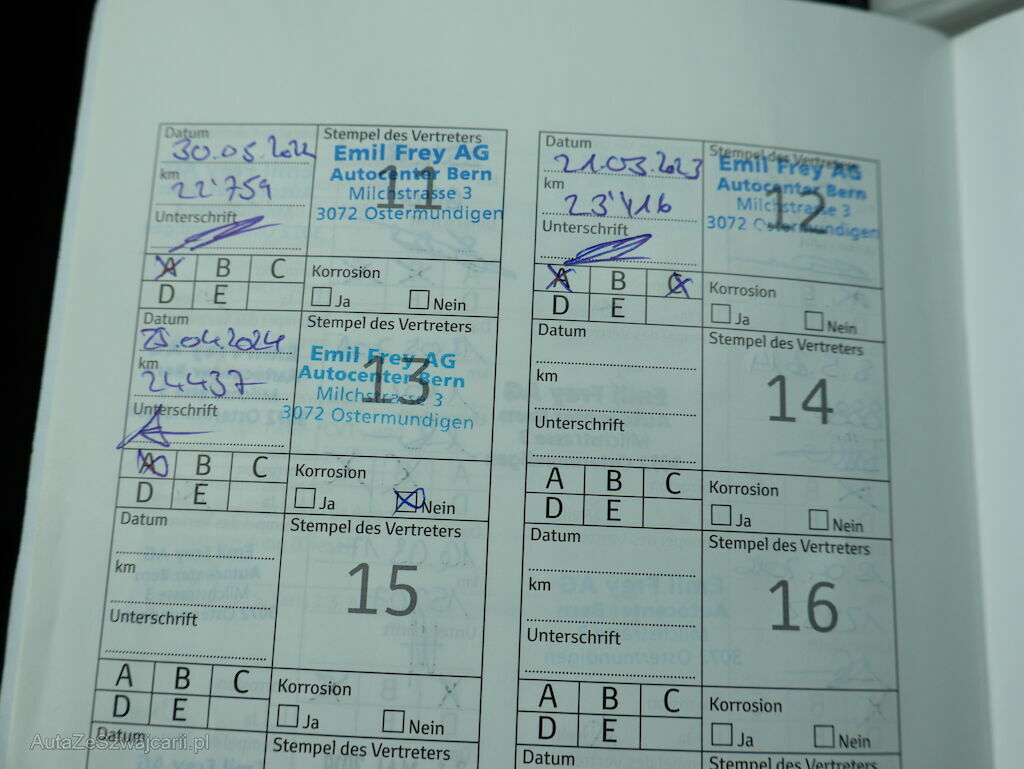 Datum
30.05.2022
km
22'759
Unterschrift
Stempel des Vertreters
11
Emil Frey AG
Autocenter Bern
Milchstrasse 3
3072 Ostermundigen
A B C
D E
Korrosion
Ja Nein
Datum
21.03.2023
km
23'416
Unterschrift
Stempel des Vertreters
12
Emil Frey AG
Autocenter Bern
Milchstrasse 3
3072 Ostermundigen
A B C
D E
Korrosion
Ja Nein
Datum
25.04.2024
km
24437
Unterschrift
Stempel des Vertreters
13
Emil Frey AG
Autocenter Bern
Milchstrasse 3
3072 Ostermundigen
A B C
D E
Korrosion
Ja Nein
Datum
km
Unterschrift
Stempel des Vertreters
14
A B C
D E
Korrosion
Ja Nein
Datum
km
Unterschrift
Stempel des Vertreters
15
A B C
D E
Korrosion
Ja Nein
Datum
km
Unterschrift
Stempel des Vertreters
16
A B C
D E
Korrosion
Ja Nein
Datum
Stempel des Vertreters
Datum
Stempel des Vertreters
AutaZeSzwajcarii.pl